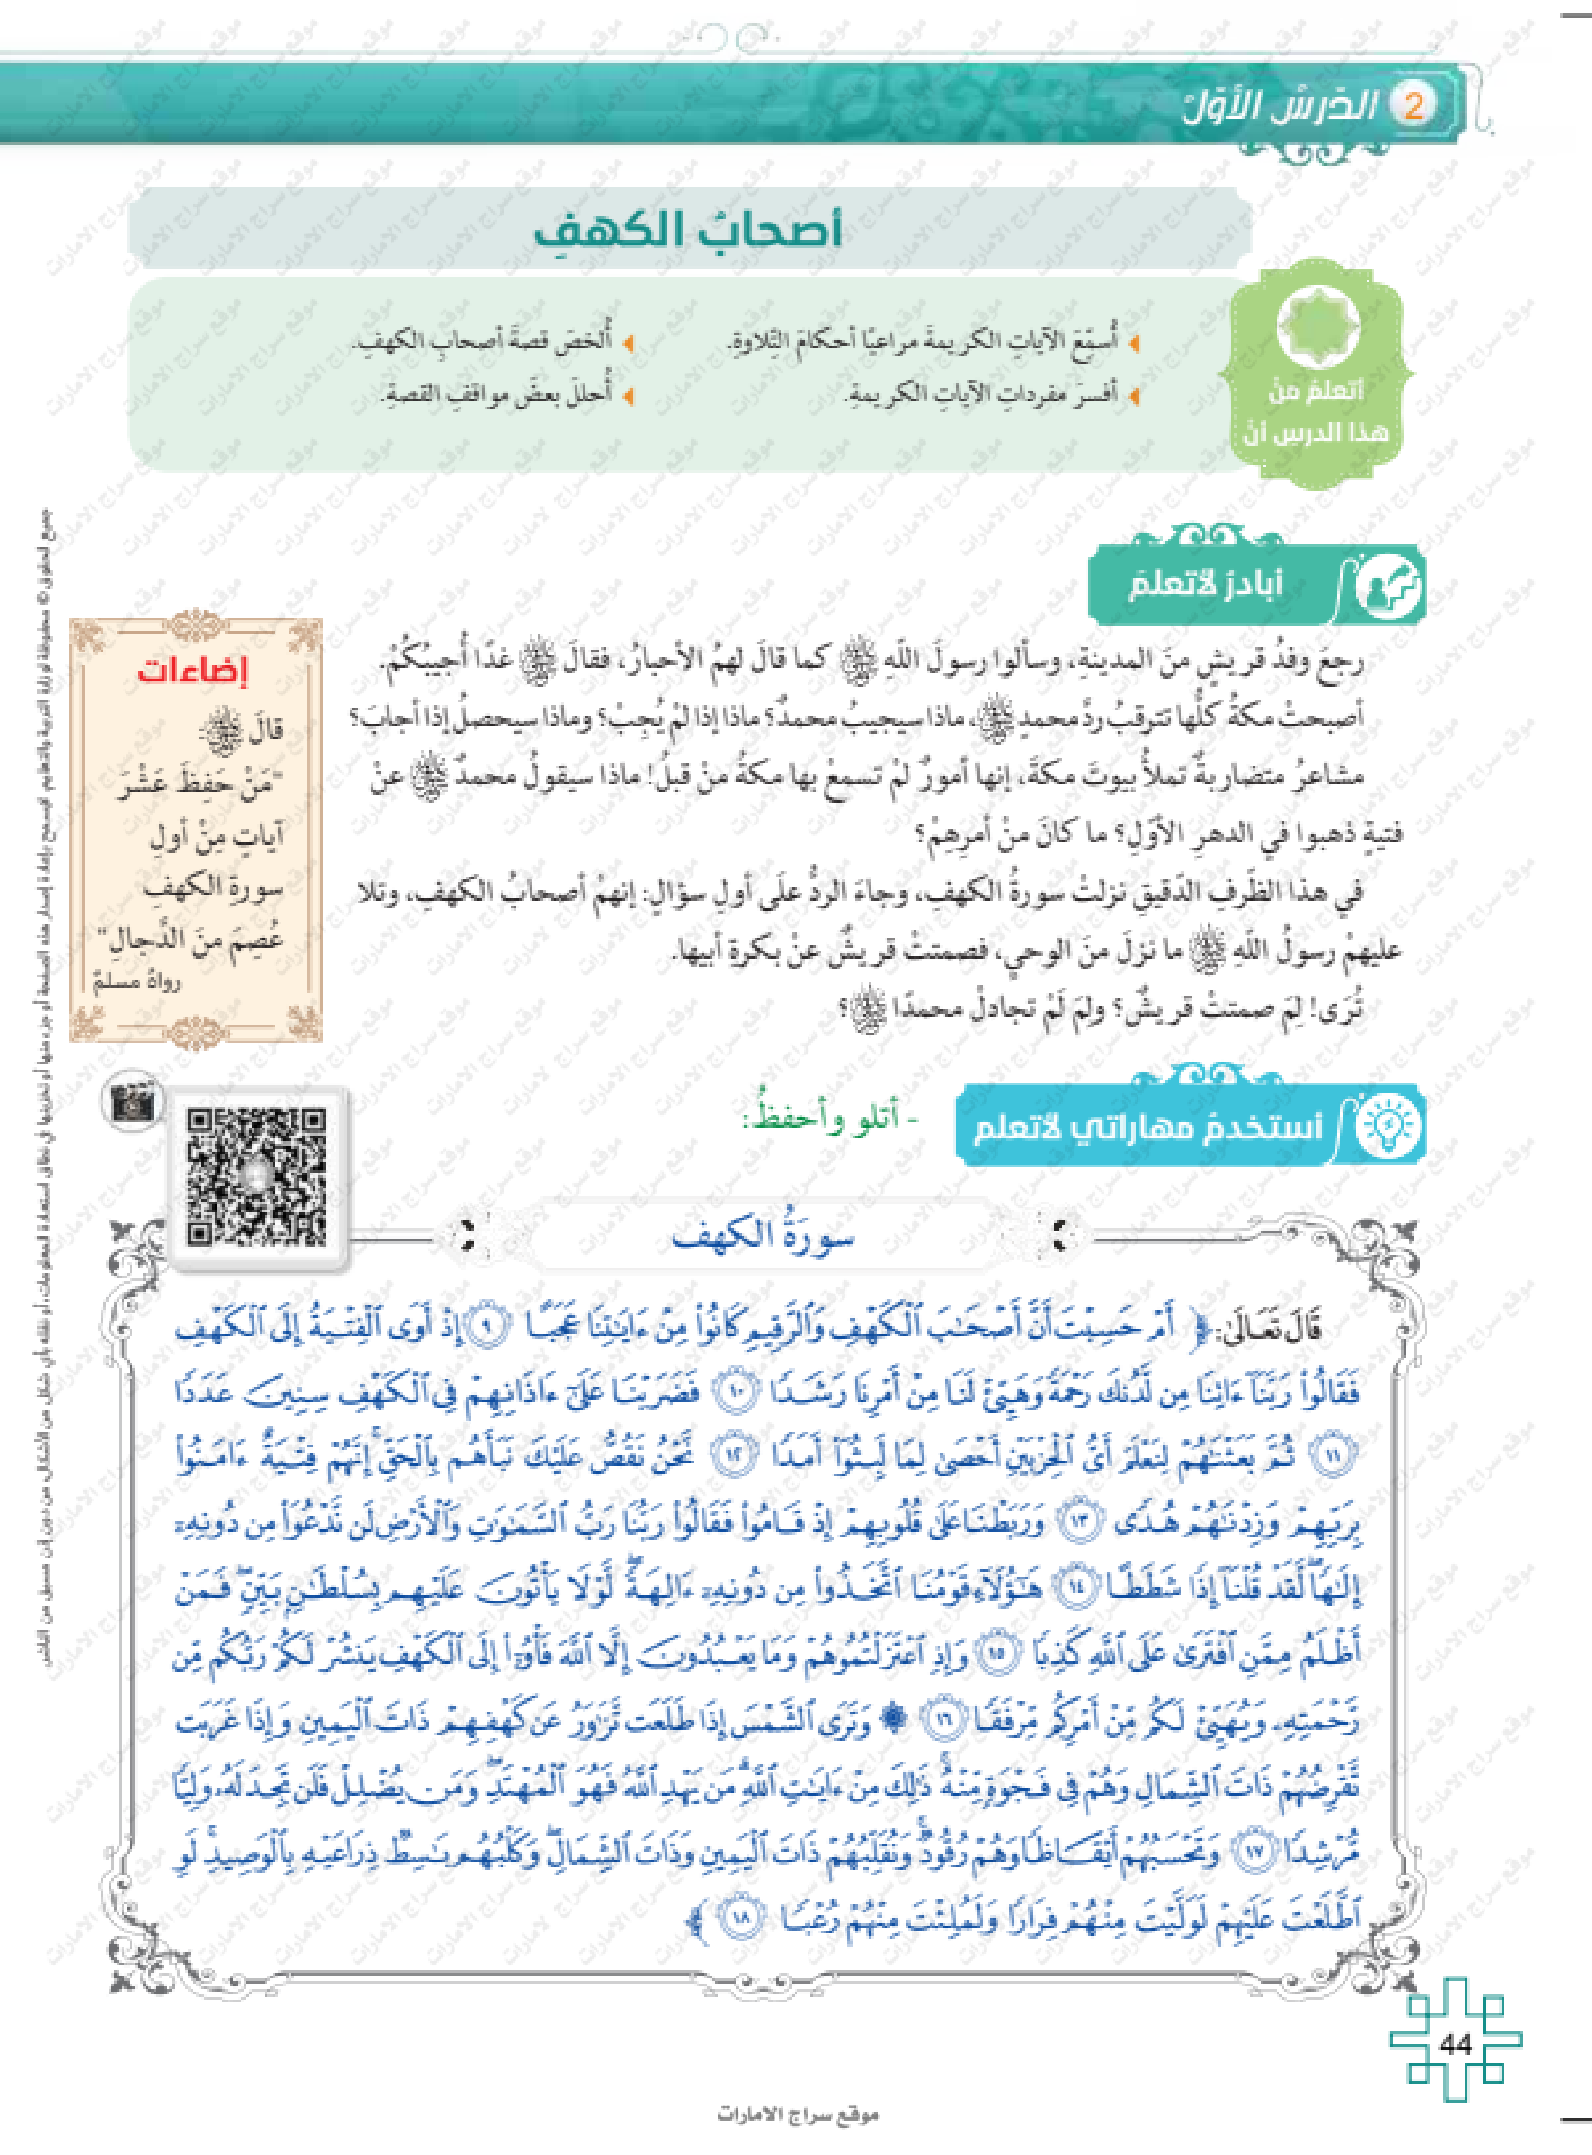 2 الدّرسُ الأوّلُ
أصحابُ الكهفِ
أتعلمُ منْ
هذا الدرسِ أنْ
أُسمِّعَ الآياتِ الكريمةَ مراعيًا أحكامَ التِّلاوةِ.
أفسرَ مفرداتِ الآياتِ الكريمةِ.
أُلخصَ قصةَ أصحابِ الكهفِ.
أُحللَ بعضَ مواقفِ القصةِ.
أبادرُ لأتعلمَ
رجعَ وفدُ قريشٍ منَ المدينةِ، وسألوا رسولَ اللّهِ ﷺ كما قالَ لهمُ الأحبارُ، فقالَ ﷺ غدًا أُجيبُكُمْ.
أصبحتْ مكةُ كلُّها تترقبُ ردَّ محمدٍ ﷺ، ماذا سيجيبُ محمدٌ؟ ماذا إذا لمْ يُجِبْ؟ وماذا سيحصلُ إذا أجابَ؟
مشاعرُ متضاربةٌ تملأُ بيوتَ مكةَ، إنها أمورٌ لمْ تسمعْ بها مكةُ منْ قبلُ! ماذا سيقولُ محمدٌ ﷺ عنْ
فتيةٍ ذهبوا في الدهرِ الأوّلِ؟ ما كانَ منْ أمرِهِمْ؟
في هذا الظّرفِ الدّقيقِ نزلتْ سورةُ الكهفِ، وجاءَ الردُّ علَى أولِ سؤالٍ: إنهمْ أصحابُ الكهفِ، وتلا
عليهمْ رسولُ اللّهِ ﷺ ما نزلَ منَ الوحيِ، فصمتتْ قريشٌ عنْ بكرةِ أبيها.
تُرَى! لِمَ صمتتْ قريشٌ؟ ولِمَ لَمْ تجادلْ محمدًا ﷺ؟
إضاءات
قالَ ﷺ
"مَنْ حَفِظَ عَشْرَ
آياتٍ مِنْ أولِ
سورةِ الكهفِ
عُصِمَ منَ الدَّجالِ"
رواهُ مسلمٌ
أستخدمُ مهاراتي لأتعلم
- أتلو وأحفظُ:
سورَةُ الكهف
قَالَ تَعَالَىٰ: ﴿ أَمْ حَسِبْتَ أَنَّ أَصْحَٰبَ ٱلْكَهْفِ وَٱلرَّقِيمِ كَانُوا۟ مِنْ ءَايَٰتِنَا عَجَبًا ٩ إِذْ أَوَى ٱلْفِتْيَةُ إِلَى ٱلْكَهْفِ
فَقَالُوا۟ رَبَّنَآ ءَاتِنَا مِن لَّدُنكَ رَحْمَةً وَهَيِّئْ لَنَا مِنْ أَمْرِنَا رَشَدًا ١٠ فَضَرَبْنَا عَلَىٰٓ ءَاذَانِهِمْ فِى ٱلْكَهْفِ سِنِينَ عَدَدًا
١١ ثُمَّ بَعَثْنَٰهُمْ لِنَعْلَمَ أَىُّ ٱلْحِزْبَيْنِ أَحْصَىٰ لِمَا لَبِثُوٓا۟ أَمَدًا ١٢ نَّحْنُ نَقُصُّ عَلَيْكَ نَبَأَهُم بِٱلْحَقِّ ۚ إِنَّهُمْ فِتْيَةٌ ءَامَنُوا۟
بِرَبِّهِمْ وَزِدْنَٰهُمْ هُدًى ١٣ وَرَبَطْنَا عَلَىٰ قُلُوبِهِمْ إِذْ قَامُوا۟ فَقَالُوا۟ رَبُّنَا رَبُّ ٱلسَّمَٰوَٰتِ وَٱلْأَرْضِ لَن نَّدْعُوَا۟ مِن دُونِهِۦٓ
إِلَٰهًا ۖ لَّقَدْ قُلْنَآ إِذًا شَطَطًا ١٤ هَٰٓؤُلَآءِ قَوْمُنَا ٱتَّخَذُوا۟ مِن دُونِهِۦٓ ءَالِهَةً ۖ لَّوْلَا يَأْتُونَ عَلَيْهِم بِسُلْطَٰنٍۭ بَيِّنٍ ۖ فَمَنْ
أَظْلَمُ مِمَّنِ ٱفْتَرَىٰ عَلَى ٱللَّهِ كَذِبًا ١٥ وَإِذِ ٱعْتَزَلْتُمُوهُمْ وَمَا يَعْبُدُونَ إِلَّا ٱللَّهَ فَأْوُۥٓا۟ إِلَى ٱلْكَهْفِ يَنشُرْ لَكُمْ رَبُّكُم مِّن
رَّحْمَتِهِۦ وَيُهَيِّئْ لَكُم مِّنْ أَمْرِكُم مِّرْفَقًا ١٦ ۞ وَتَرَى ٱلشَّمْسَ إِذَا طَلَعَت تَّزَٰوَرُ عَن كَهْفِهِمْ ذَاتَ ٱلْيَمِينِ وَإِذَا غَرَبَت
تَّقْرِضُهُمْ ذَاتَ ٱلشِّمَالِ وَهُمْ فِى فَجْوَةٍ مِّنْهُ ۚ ذَٰلِكَ مِنْ ءَايَٰتِ ٱللَّهِ ۗ مَن يَهْدِ ٱللَّهُ فَهُوَ ٱلْمُهْتَدِ ۖ وَمَن يُضْلِلْ فَلَن تَجِدَ لَهُۥ وَلِيًّا
مُّرْشِدًا ١٧ وَتَحْسَبُهُمْ أَيْقَاظًا وَهُمْ رُقُودٌ ۚ وَنُقَلِّبُهُمْ ذَاتَ ٱلْيَمِينِ وَذَاتَ ٱلشِّمَالِ ۖ وَكَلْبُهُم بَٰسِطٌ ذِرَاعَيْهِ بِٱلْوَصِيدِ ۚ لَوِ
ٱطَّلَعْتَ عَلَيْهِمْ لَوَلَّيْتَ مِنْهُمْ فِرَارًا وَلَمُلِئْتَ مِنْهُمْ رُعْبًا ١٨ ﴾
44
موقع سراج الامارات